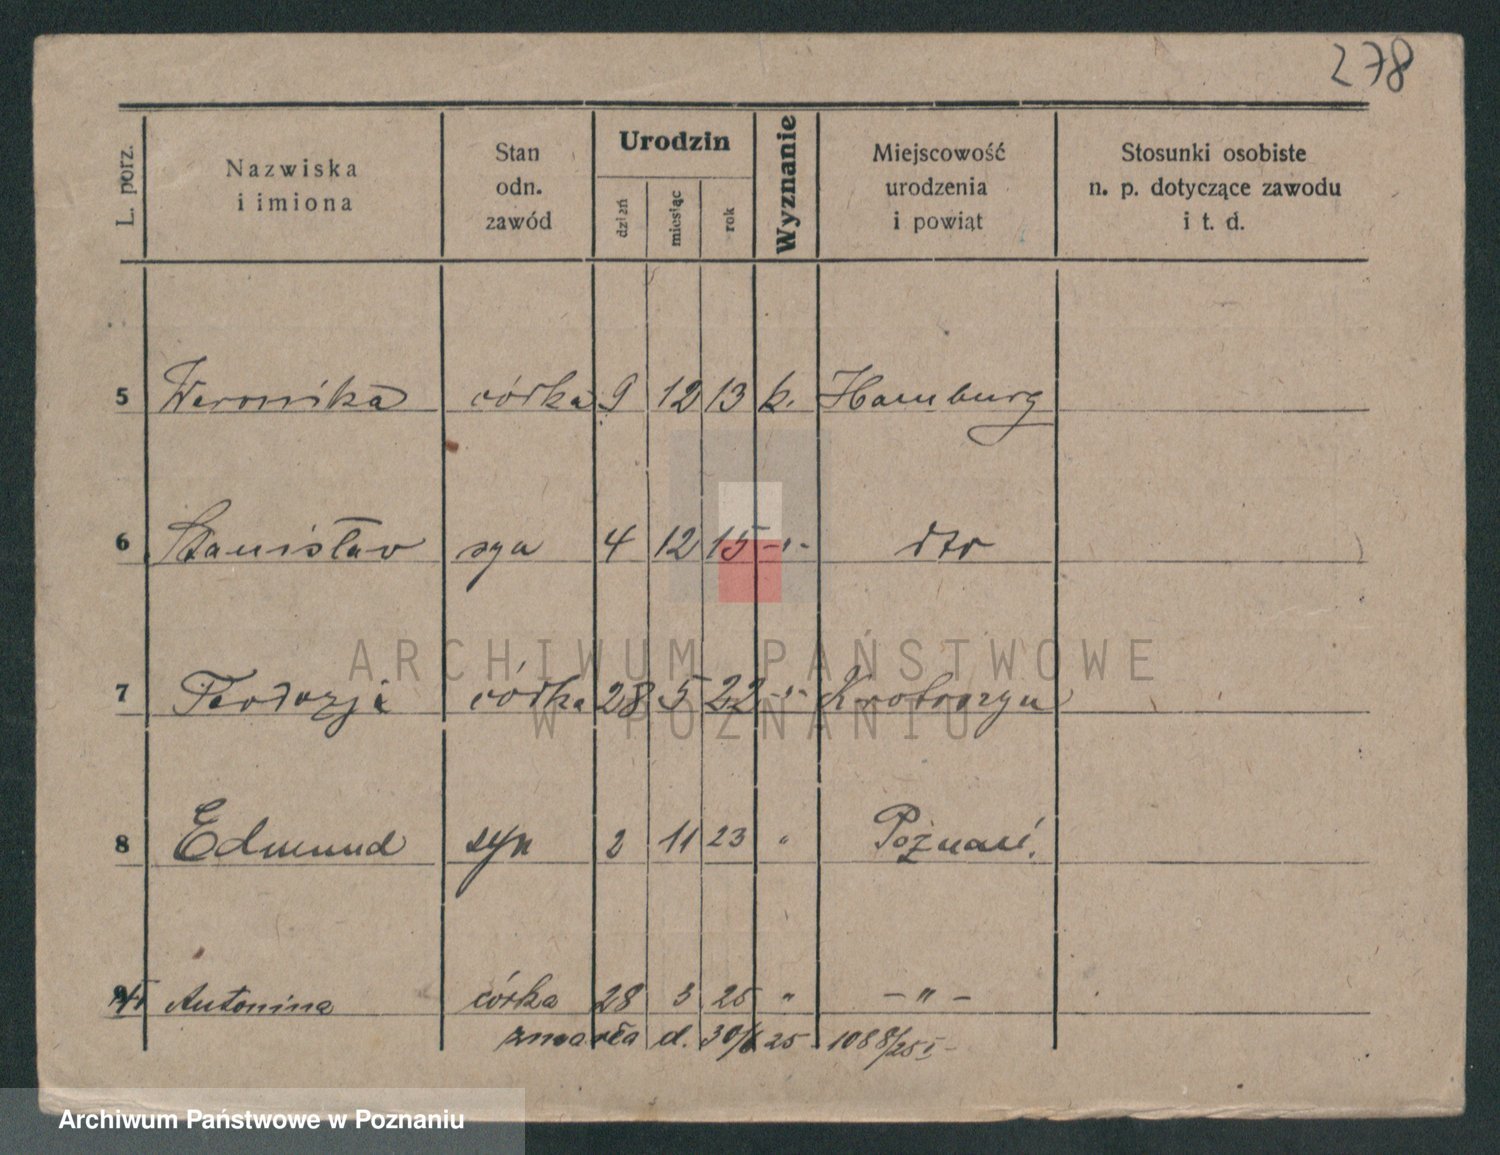 278
L. porz.
Nazwiska
i imiona
Stan
odn.
zawód
Urodzin
dzień
miesiąc
rok
Wyznanie
Miejscowość
urodzenia
i powiąt
Stosunki osobiste
n. p. dotyczące zawodu
i t. d.
5 Weronika córka 9 12 13 k. Hamburg
6 Stanisław syn 4 12 15 -„- dto
7 Teodozja córka 28 5 22 -„- Krotoszyn
8 Edmund syn 2 11 23 „ Poznań.
Antonina córka 28 3 25 „ -„-
zmarła d. 30/6 25 1088/25
ARCHIWUM PAŃSTWOWE
W POZNANIU
Archiwum Państwowe w Poznaniu